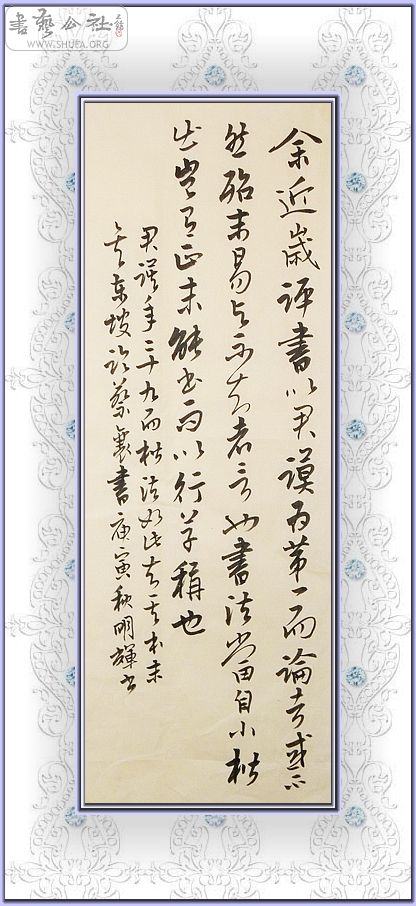 書藝公社
WWW.SHUFA.ORG
余近歲評書以君謨為第一而論者或不
然殆未易與不知者言也書法當自小楷
出豈有正未能書而以行草稱也
君謨年二十九而楷法如此知其本末
矣東坡論蔡襄書庚寅秋明輝書